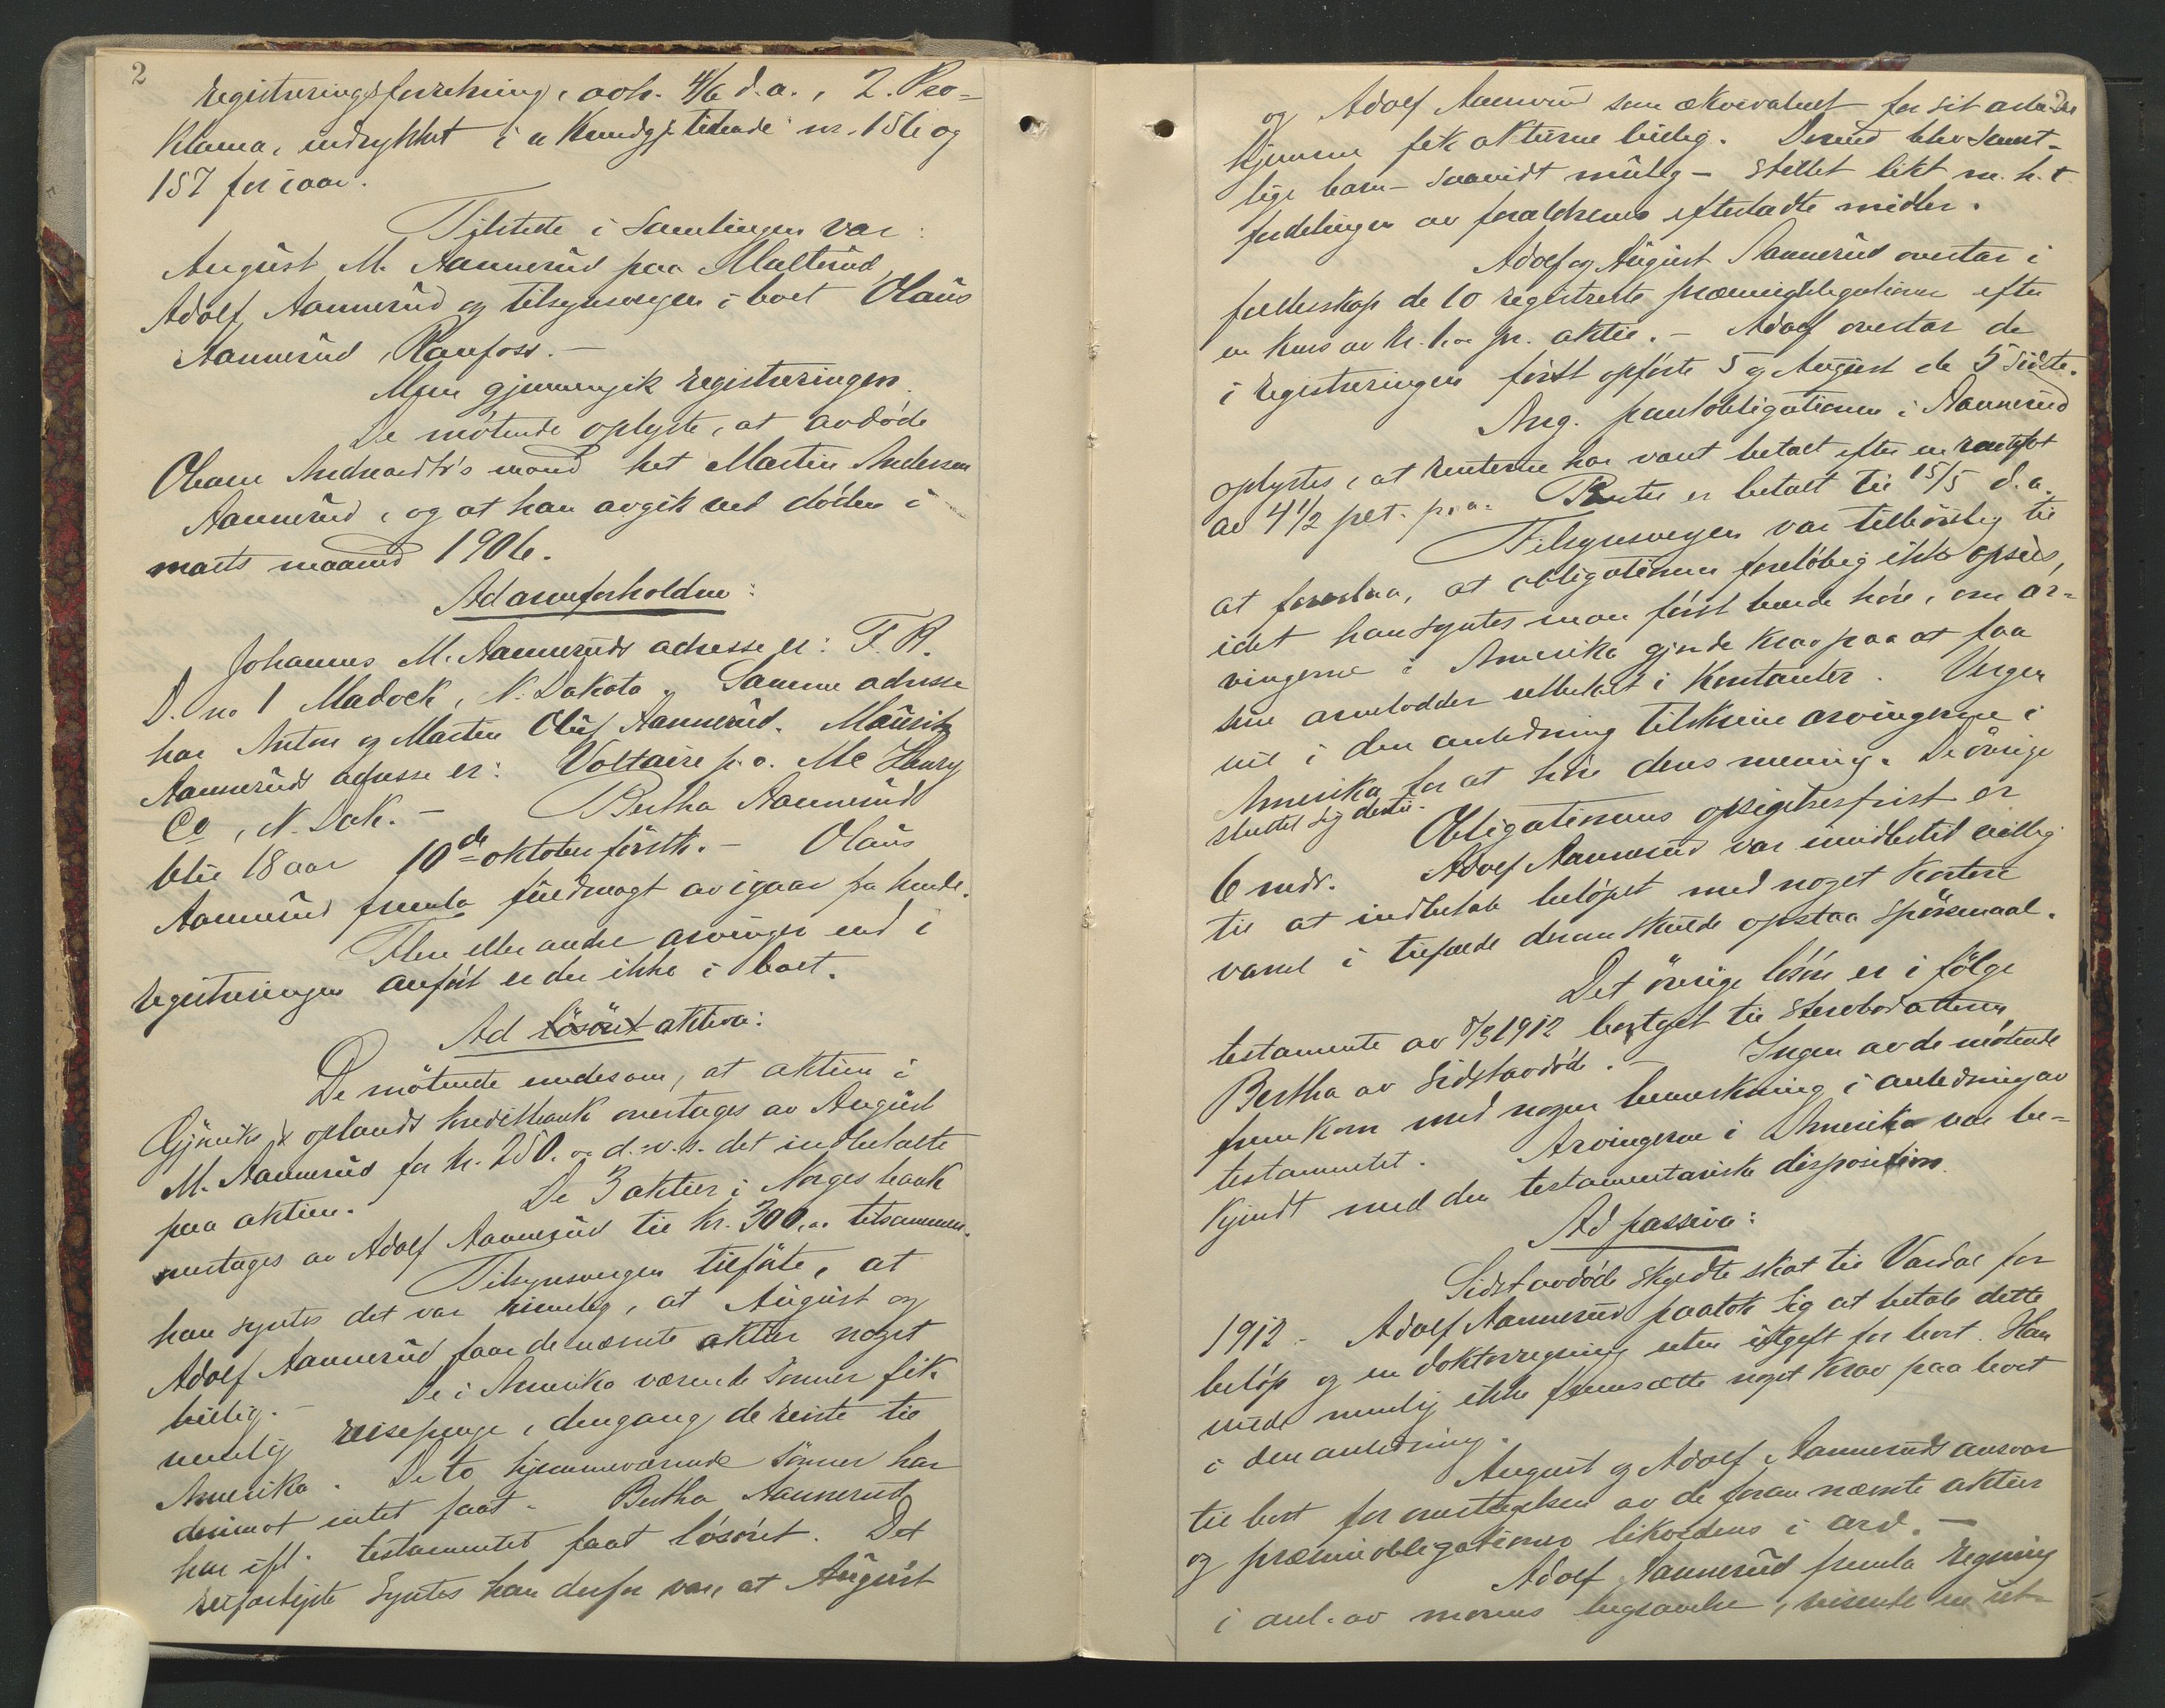 2
registreringsforretning, avh. 4/6 d.a., 2. Pro-
klama, indrykket i "Kundgj. tidende" nr. 156 og
157 for iaar.
Tilstede i samlingen var:
August M. Aannerud paa Malterud,
Adolf Aannerud og tilsynsvergen i boet Olaus
Aannerud, Raufoss. -
Man gjennemgik registreringen.
De mötende oplyste, at avdöde
Oleane Andreasdtr's mand het Martin Andersen
Aannerud, og at han avgik ved döden i
marts maaned 1906.
Ad arveforholdene:
Johannes M. Aanneruds adresse er: F. R.
D. no 1 Madock, N. Dakota. Samme adresse
har Anton og Martin Oluf Aannerud. Mauritz
Aanneruds adresse er: Voltaire p. o. Mc Henry
Co, N. Dak. - Bertha Aannerud
blir 18 aar 10de oktober förstk. - Olaus
Aannerud fremla fuldmagt av igaar fra hende.
Flere eller andre arvinger end i
registreringen anfört er der ikke i boet.
Ad lösöret aktiva:
De mötende enedes om, at aktien i
Gjöviks & oplands kreditbank overtages av August
M. Aannerud for kr. 250.oo d.v.s. det indbetalte
paa aktien. De 3 aktier i Norges bank
overtages av Adolf Aannerud til kr. 300,oo tilsammen.
Tilsynsvergen tilföiet, at
han syntes det var rimelig, at August og
Adolf Aannerud faar de nævnte aktier noget
billig. - De i Amerika værende sönner fik
nemlig reisepenge, dengang de reiste til
Amerika. De to hjemmeværende sönner har
derimot intet faat. Bertha Aannerud
har ifl. testamentet faat lösöret. Det
retfærdigste syntes han derfor være at August
og Adolf Aannerud som ækvivalent for sit arbeide
hjemme fik aktierne billig. Derved blev samt-
lige barn - saavidt mulig - stillet likt m. h. t.
fordelingen av forældrenes efterladte midler.
Adolf og August Aannerud overtar i
fællesskap de 10 registrerte præmieobligationer efter
en kurs av kr. pr. aktie. - Adolf overtar de
i registreringen först opförte 5 og August de 5 sidste.
Ang. pantobligationen i Aannerud
oplystes, at renterne har vært betalt efter en rentefot
av 4 1/2 pct. p. a. Renter er betalt til 15/5 d. a.
Tilsynsvergen var tilböielig til
at foreslaa, at obligationen foreløbig ikke opsies,
idet han syntes man först burde höre, om ar-
vingerne i Amerika gjorde krav paa at faa
sine arvelodder utbetalt i kontanter. Vergen
vil i den anledning tilskrive arvingerne i
Amerika for at höre deres mening. De övrige
sluttet sig dertil.
Obligationens opsigelsesfrist er
6 mdr. Adolf Aannerud var imidlertid villig
til at indbetale belöpet med noget kortere
varsel i tilfælde derom skulde opstaa spörsmaal.
Det övrige lösöre er i fölge
testamente av 8/3 1912 bortgit til stervbodatteren
Bertha av sidstavdöde. - Ingen av de mötende
fremkom med nogen bemerkning i anledning av
testamentet. Arvingerne i Amerika var be-
kjendt med den testamentariske disposition.
Ad passiva:
Sidstavdöde skyldte skat til Vardal for
1912. - Adolf Aannerud paatok sig at betale dette
belöp og en doktorregning uten utgift for boet. Han
vilde nemlig ikke fremsætte noget krav paa boet
i den anledning.
August og Adolf Aanneruds ansvar
til boet for overtagelsen av de foran nævnte aktier
og præmieobligationer likvideres i arv. -
Adolf Aannerud fremla regning
i anl. av morens begravelse, visende en ut-